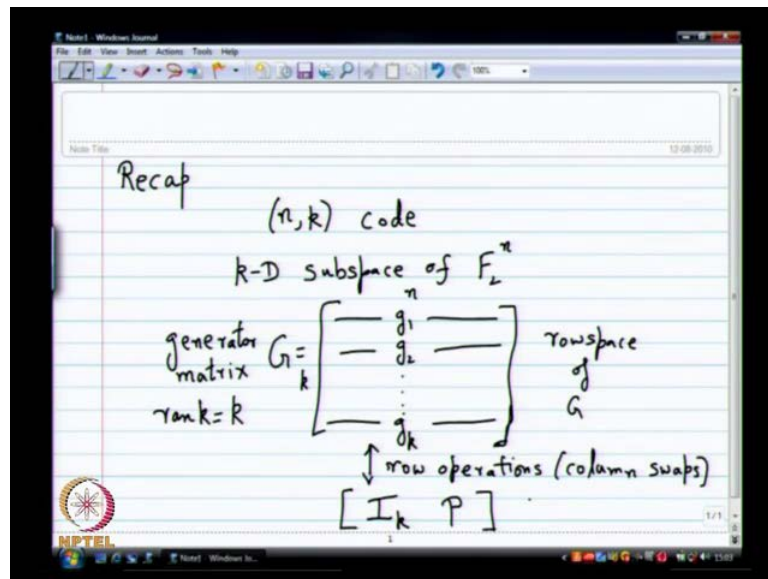 Note1 - Windows Journal
File Edit View Insert Actions Tools Help
100%
Note Title
12-08-2010
Recap
(n, k) code
k-D subspace of F₂ⁿ
n
generator matrix G = k [ — g₁ — rowspace
— g₂ — of
⋮ G
rank = k — gₖ — ]
↕ row operations (column swaps)
[ Iₖ P ]
1/1
NPTEL
1
Note1 - Windows Jo...
15:03